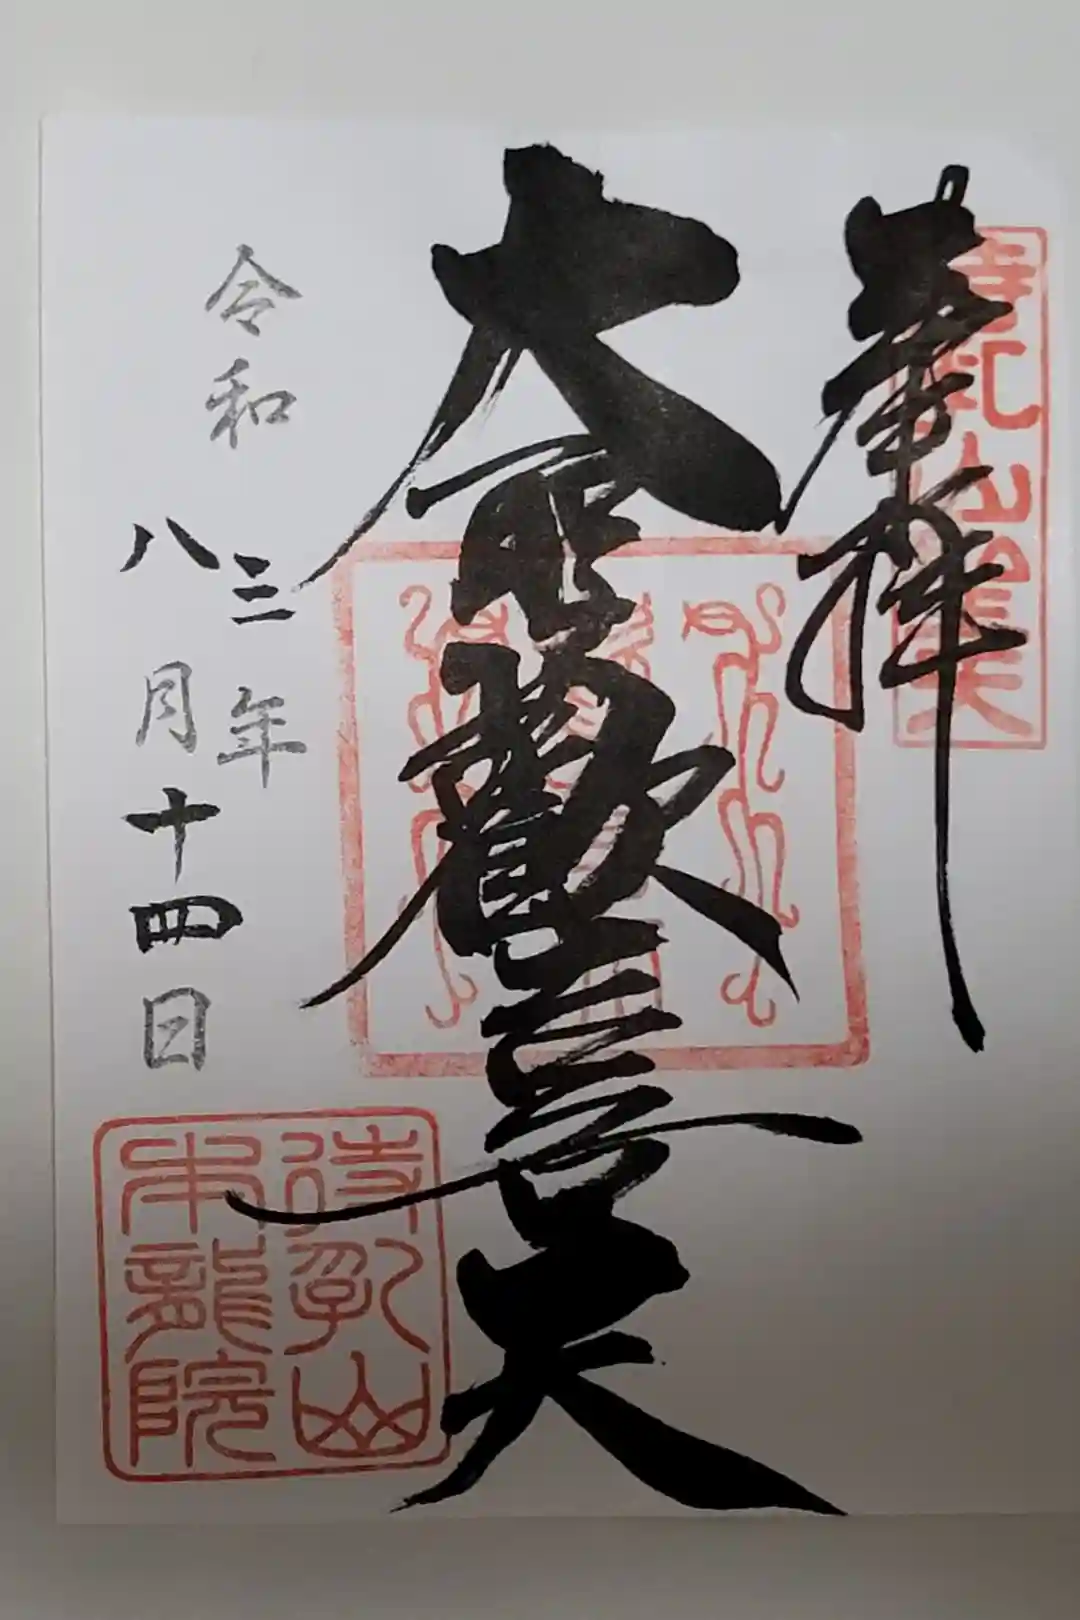 奉拝
待乳山聖天
大聖歓喜天
令和三年
八月十四日
待乳山
本龍院